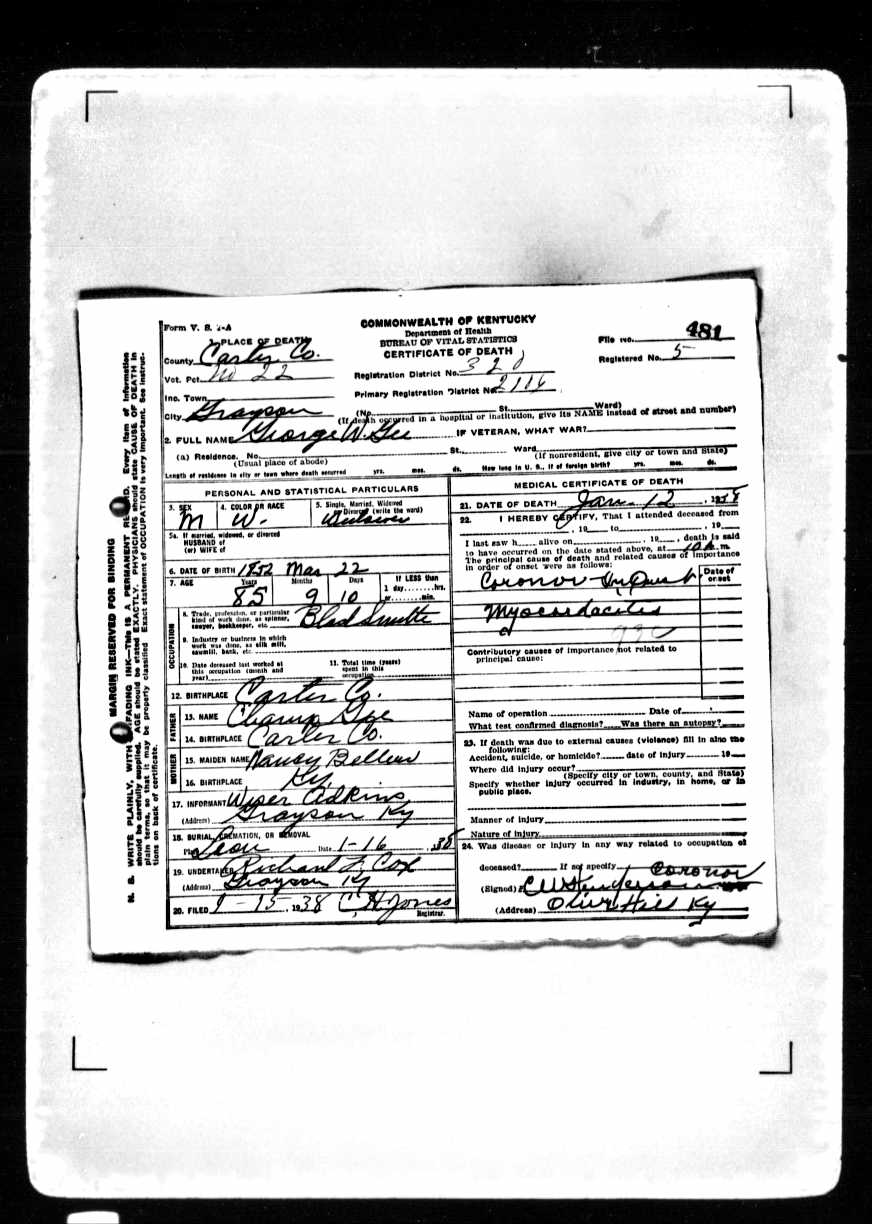 Form V. S. 1-A
COMMONWEALTH OF KENTUCKY
Department of Health
BUREAU OF VITAL STATISTICS
CERTIFICATE OF DEATH
File No. 481
Registered No. 5
1. PLACE OF DEATH
County Carter Co.
Vot. Pct. No 22
Registration District No. 320
Inc. Town
Primary Registration District No. 2116
City Grayson
(No. St. Ward)
(If death occurred in a hospital or institution, give its NAME instead of street and number)
2. FULL NAME George W. Gee IF VETERAN, WHAT WAR?
(a) Residence. No. St., Ward.
(Usual place of abode) (If nonresident, give city or town and State)
Length of residence in city or town where death occurred yrs. mos. ds. How long in U. S., if of foreign birth? yrs. mos. ds.
PERSONAL AND STATISTICAL PARTICULARS
3. SEX M
4. COLOR OR RACE W.
5. Single, Married, Widowed
or Divorced (write the word)
Widower
5a. If married, widowed, or divorced
HUSBAND of
(or) WIFE of
6. DATE OF BIRTH 1852 Mar 22
7. AGE Years Months Days If LESS than
85 9 10 1 day hrs.
or min.
OCCUPATION
8. Trade, profession, or particular
kind of work done, as spinner,
sawyer, bookkeeper, etc.
Blad Smith
9. Industry or business in which
work was done, as silk mill,
sawmill, bank, etc.
10. Date deceased last worked at
this occupation (month and
year)
11. Total time (years)
spent in this
occupation
12. BIRTHPLACE Carter Co.
FATHER
13. NAME Champ Gee
14. BIRTHPLACE Carter Co.
MOTHER
15. MAIDEN NAME Nancy
16. BIRTHPLACE Ky.
17. INFORMANT Wiser Adkins
(Address) Grayson Ky
18. BURIAL, CREMATION, OR REMOVAL
Place Leon Date 1-16, 38
19. UNDERTAKER Richard L Cox
(Address) Grayson Ky
20. FILED 1-15, 1938 C, H Jones
Registrar.
MEDICAL CERTIFICATE OF DEATH
21. DATE OF DEATH Jan. 12, 1938
22. I HEREBY CERTIFY, That I attended deceased from
, 19 to , 19
I last saw h alive on , 19 , death is said
to have occurred on the date stated above, at 10 A. m.
The principal cause of death and related causes of importance
in order of onset were as follows:
Date of
onset
Coronor Inquest
Contributory causes of importance not related to
principal cause:
Name of operation Date of
What test confirmed diagnosis? Was there an autopsy?
23. If death was due to external causes (violence) fill in also the
following:
Accident, suicide, or homicide? date of injury 19
Where did injury occur?
(Specify city or town, county, and State)
Specify whether injury occurred in industry, in home, or in
public place.
Manner of injury
Nature of injury
24. Was disease or injury in any way related to occupation of
deceased? If so, specify
Coronor
(Signed) C W Henderson
(Address) Olive Hill Ky
MARGIN RESERVED FOR BINDING
N. B. WRITE PLAINLY, WITH UNFADING INK—This is A PERMANENT RECORD. Every item of information
should be carefully supplied. AGE should be stated EXACTLY. PHYSICIANS should state CAUSE OF DEATH in
plain terms, so that it may be properly classified. Exact statement of OCCUPATION is very important. See instruc-
tions on back of certificate.